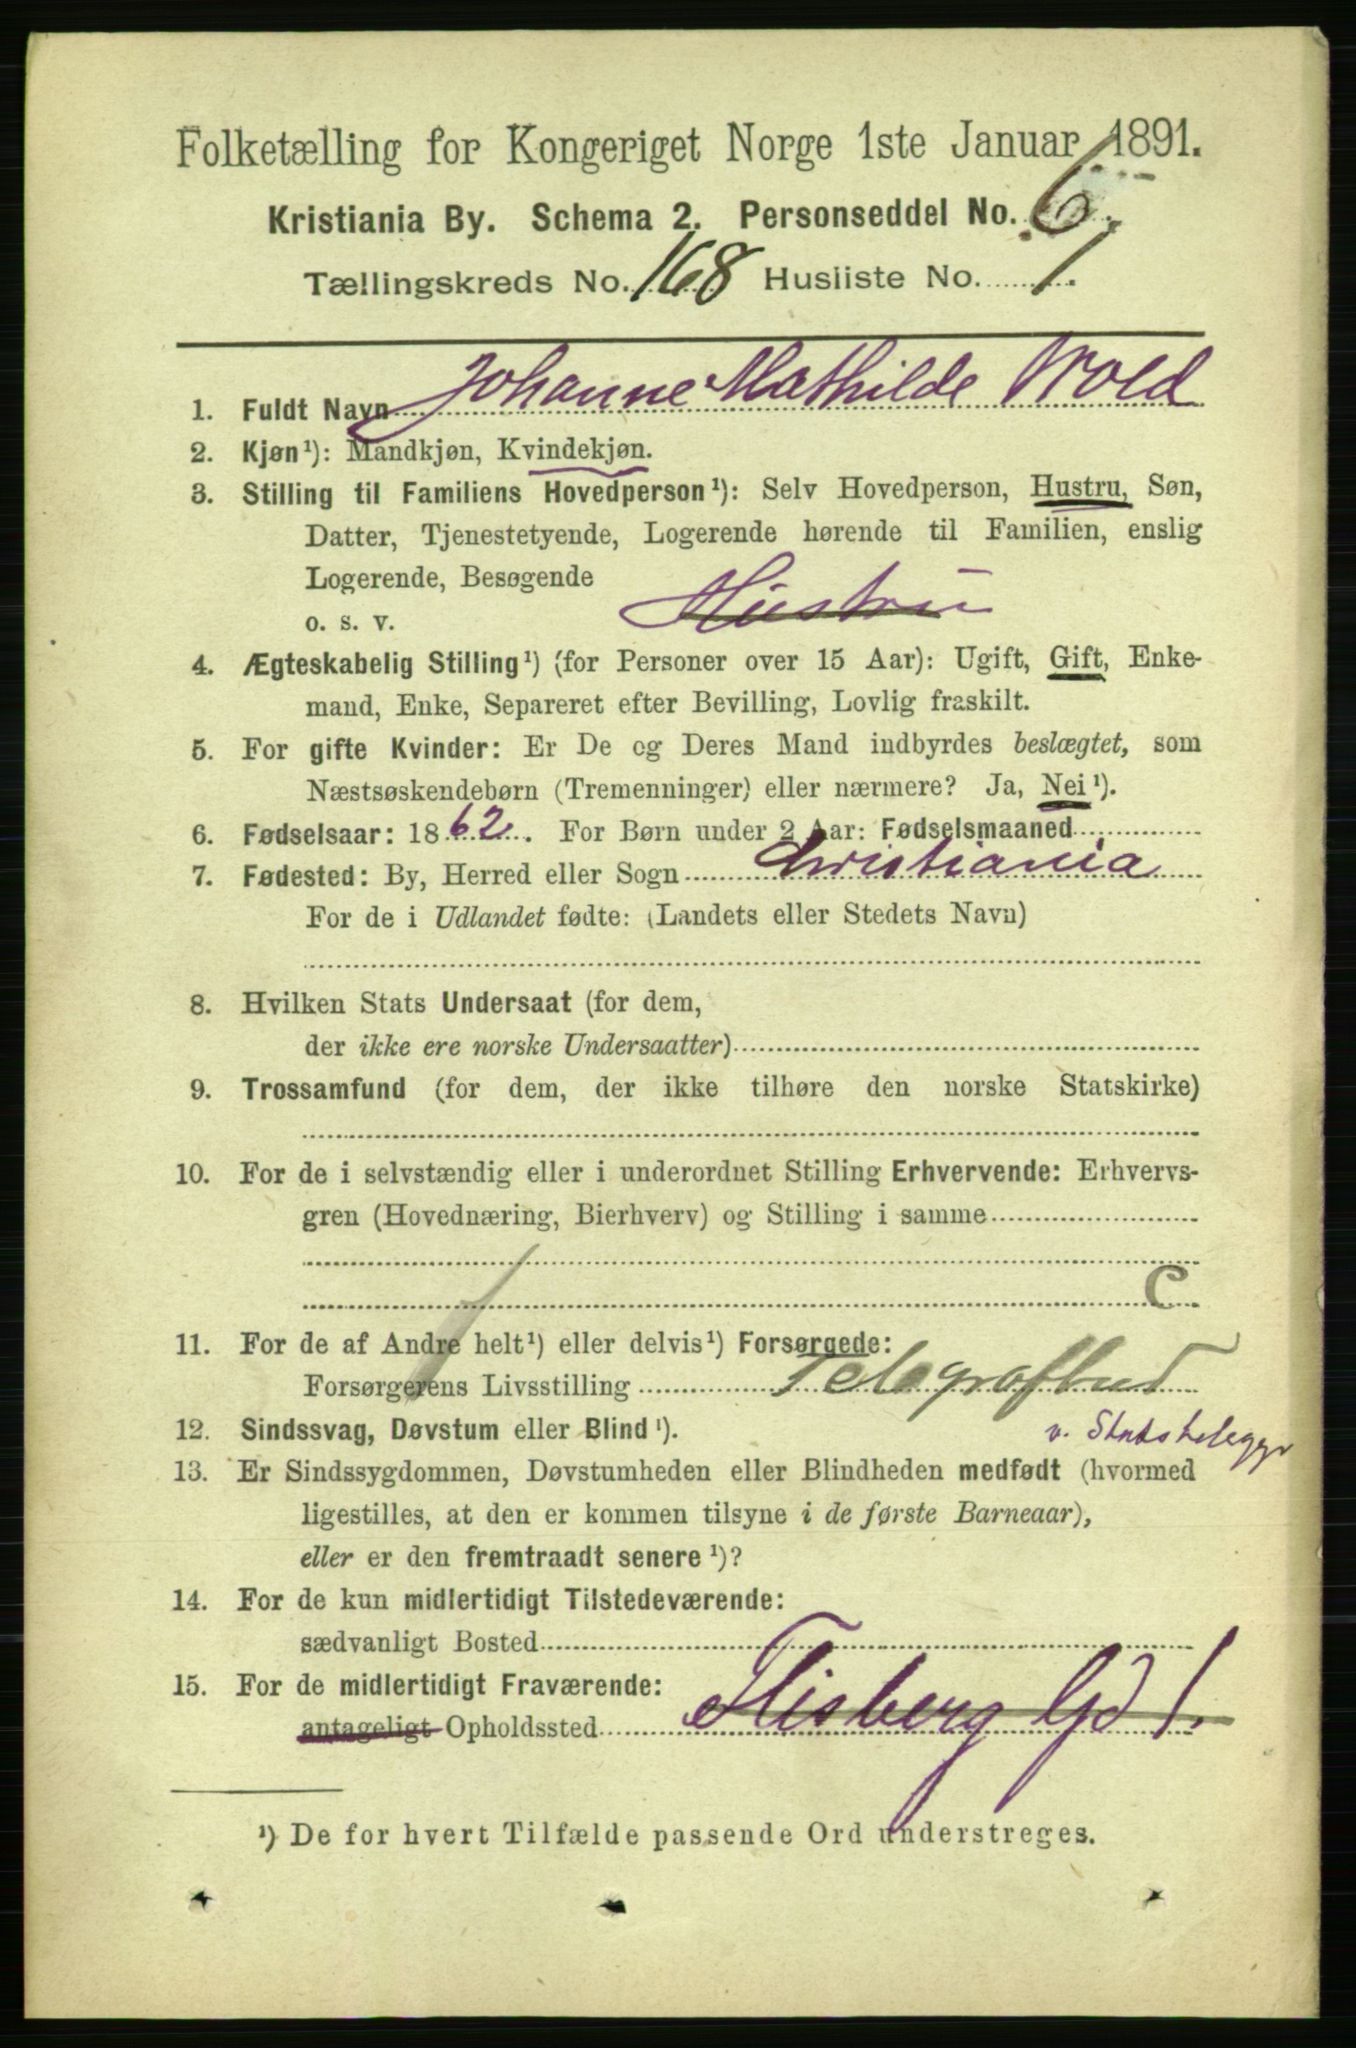 Folketælling for Kongeriget Norge 1ste Januar 1891.
Kristiania By. Schema 2. Personseddel No. 6.
Tællingskreds No. 168 Husliste No. 1.
1. Fuldt Navn Johanne Mathilde Wold
2. Kjøn¹): Mandkjøn, Kvindekjøn.
3. Stilling til Familiens Hovedperson¹): Selv Hovedperson, Hustru, Søn,
Datter, Tjenestetyende, Logerende hørende til Familien, enslig
Logerende, Besøgende
o. s. v. Hustru
4. Ægteskabelig Stilling¹) (for Personer over 15 Aar): Ugift, Gift, Enke-
mand, Enke, Separeret efter Bevilling, Lovlig fraskilt.
5. For gifte Kvinder: Er De og Deres Mand indbyrdes beslægtet, som
Næstsøskendebørn (Tremenninger) eller nærmere? Ja, Nei¹).
6. Fødselsaar: 1862. For Børn under 2 Aar: Fødselsmaaned
7. Fødested: By, Herred eller Sogn Christiania
For de i Udlandet fødte: (Landets eller Stedets Navn)
8. Hvilken Stats Undersaat (for dem,
der ikke ere norske Undersaatter)
9. Trossamfund (for dem, der ikke tilhøre den norske Statskirke)
10. For de i selvstændig eller i underordnet Stilling Erhvervende: Erhvervs-
gren (Hovednæring, Bierhverv) og Stilling i samme
C
11. For de af Andre helt¹) eller delvis¹) Forsørgede:
Forsørgerens Livsstilling Telegrafbud
12. Sindssvag, Døvstum eller Blind¹). v. Statstelegr
13. Er Sindssygdommen, Døvstumheden eller Blindheden medfødt (hvormed
ligestilles, at den er kommen tilsyne i de første Barneaar),
eller er den fremtraadt senere¹)?
14. For de kun midlertidigt Tilstedeværende:
sædvanligt Bosted
15. For de midlertidigt Fraværende:
antageligt Opholdssted Flisberg Gd 1.
¹) De for hvert Tilfælde passende Ord understreges.